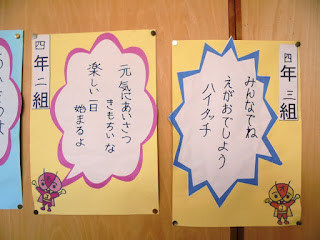 四年三組
みんなでね
えがおでしよう
ハイタッチ
元気にあいさつ
きもちいな
楽しい一日
始まるよ
四年二組